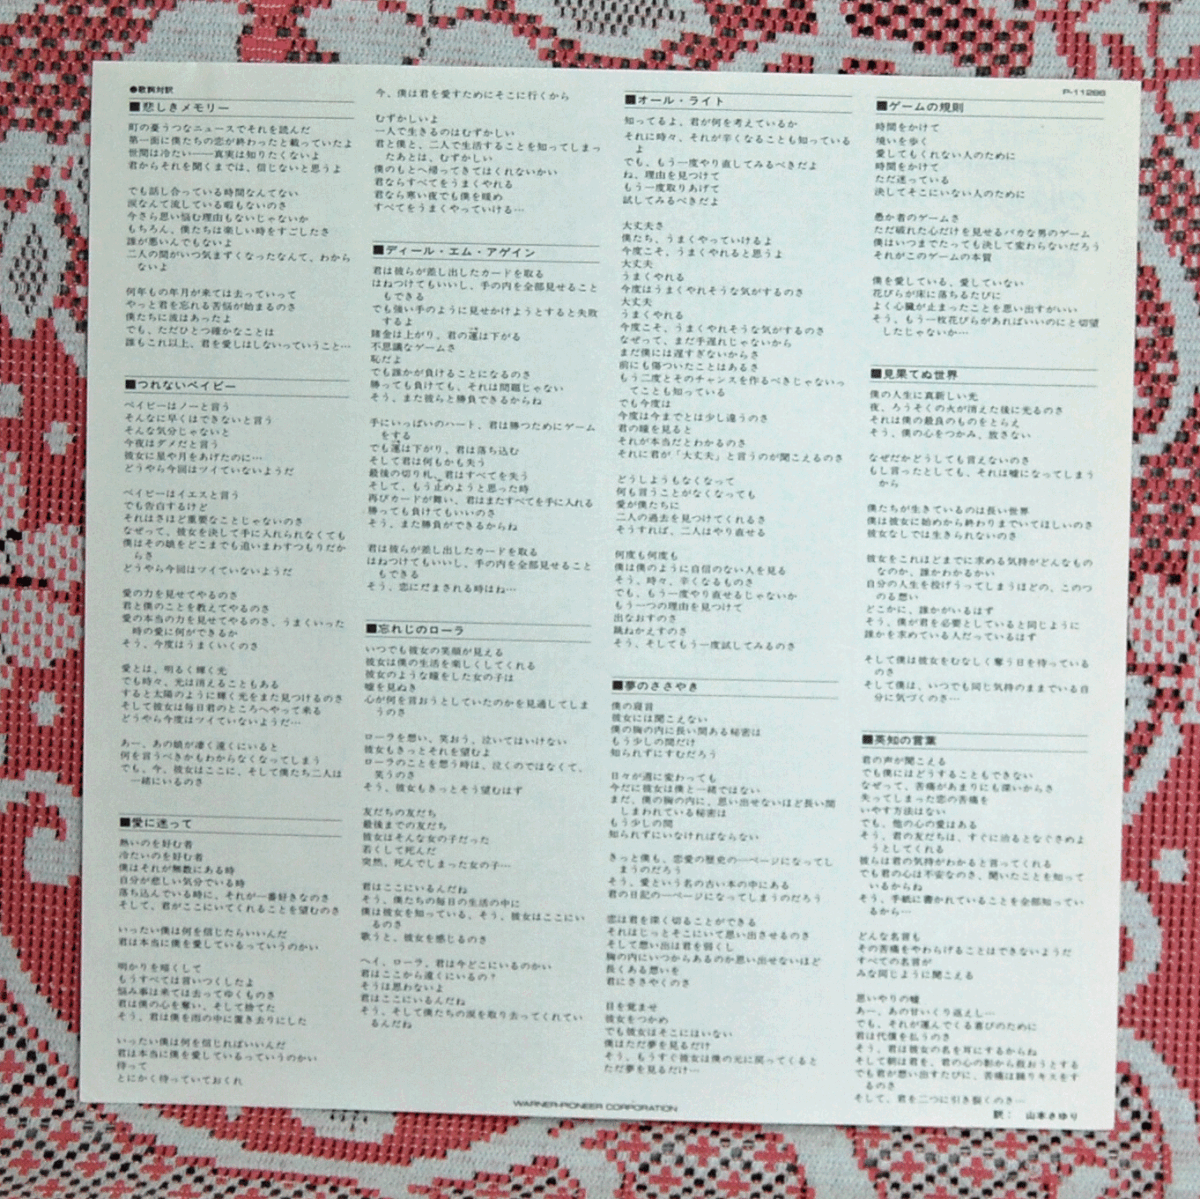 ●歌詞対訳
■悲しきメモリー
町の憂うつなニュースでそれを読んだ
第一面に僕たちの恋が終わったと載っていたよ
世間は冷たい――真実は知りたくないよ
君からそれを聞くまでは、信じないと思うよ
でも話し合っている時間なんてない
涙なんて流している暇もないのさ
今さら思い悩む理由もないじゃないか
もちろん、僕たちは楽しい時をすごしたさ
誰が悪いんでもないよ
二人の間がいつ気まずくなったなんて、わから
ないよ
何年もの年月が来ては去っていって
やっと君を忘れる苦悩が始まるのさ
僕たちに波はあったよ
でも、ただひとつ確かなことは
誰もこれ以上、君を愛しはしないっていうこと…
■つれないベイビー
ベイビーはノーと言う
そんなに早くはできないと言う
そんな気分じゃないと
今夜はダメだと言う
彼女に星や月をあげたのに…
どうやら今回はツイていないようだ
ベイビーはイエスと言う
でも告白するけど
それはさほど重要なことじゃないのさ
なぜって、彼女を決して手に入れられなくても
僕はその娘をどこまでも追いまわすつもりだか
らさ
どうやら今回はツイていないようだ
愛の力を見せてやるのさ
君と僕のことを教えてやるのさ
愛の本当の力を見せてやるのさ、うまくいった
時の愛に何ができるか
そう、今度はうまくいくのさ
愛とは、明るく輝く光
でも時々、光は消えることもある
すると太陽のように輝く光をまた見つけるのさ
そして彼女は毎日君のところへやって来る
どうやら今度はツイていないようだ…
あー、あの娘が凄く遠くにいると
何を言うべきかもわからなくなってしまう
でも、今、彼女はここに、そして僕たち二人は
一緒にいるのさ
■愛に迷って
熱いのを好む者
冷たいのを好む者
僕はそれが無数にある時
自分が悲しい気分でいる時
落ち込んでいる時に、それが一番好きなのさ
そして、君がここにいてくれることを望むのさ
いったい僕は何を信じたらいいんだ
君は本当に僕を愛しているっていうのかい
明かりを暗くして
もうすべては言いつくしたよ
悩み事は来ては去ってゆくものさ
君は僕の心を奪い、そして捨てた
そう、君は僕を雨の中に置き去りにした
いったい僕は何を信じればいいんだ
君は本当に僕を愛しているっていうのかい
待って
とにかく待っていておくれ
今、僕は君を愛すためにそこに行くから
むずかしいよ
一人で生きるのはむずかしい
君と僕と、二人で生活することを知ってしまっ
たあとは、むずかしい
僕のもとへ帰ってきてはくれないかい
君ならすべてをうまくやれる
君なら寒い夜でも僕を暖め
すべてをうまくやっていける…
■ディール・エム・アゲイン
君は彼らが差し出したカードを取る
はねつけてもいいし、手の内を全部見せること
もできる
でも強い手のように見せかけようとすると失敗
するよ
賭金は上がり、君の運は下がる
不思議なゲームさ
恥だよ
でも誰かが負けることになるのさ
勝っても負けても、それは問題じゃない
そう、また彼らと勝負できるからね
手にいっぱいのハート、君は勝つためにゲーム
をする
でも運は下がり、君は落ち込む
そして君は何もかも失う
最後の切り札、君はすべてを失う
そして、もう止めようと思った時
再びカードが舞い、君はまたすべてを手に入れる
勝っても負けてもいいのさ
そう、また勝負ができるからね
君は彼らが差し出したカードを取る
はねつけてもいいし、手の内を全部見せること
もできる
そう、恋にだまされる時はね…
■忘れじのローラ
いつでも彼女の笑顔が見える
彼女は僕の生活を楽しくしてくれる
彼女のような瞳をした女の子は
嘘を見ぬき
心が何を言おうとしていたのかを見通してしま
うのさ
ローラを想い、笑おう、泣いてはいけない
彼女もきっとそれを望むよ
ローラのことを想う時は、泣くのではなくて、
笑うのさ
そう、彼女もきっとそう望むはず
友だちの友だち
最後までの友だち
彼女はそんな女の子だった
若くして死んだ
突然、死んでしまった女の子…
君はここにいるんだね
そう、僕たちの毎日の生活の中に
僕は彼女を知っている、そう、彼女はここにい
るのさ
歌うと、彼女を感じるのさ
ヘイ、ローラ、君は今どこにいるのかい
君はここから遠くにいるの?
そうは思わないよ
君はここにいるんだね
そう、そして僕たちの涙を取り去ってくれてい
るんだね
■オール・ライト
知ってるよ、君が何を考えているか
それに時々、それが辛くなることも知っている
よ
でも、もう一度やり直してみるべきだよ
ね、理由を見つけて
もう一度取りあげて
試してみるべきだよ
大丈夫さ
僕たち、うまくやっていけるよ
今度こそ、うまくやれると思うよ
大丈夫
うまくやれる
今度はうまくやれそうな気がするのさ
大丈夫
うまくやれる
今度こそ、うまくやれそうな気がするのさ
なぜって、まだ手遅れじゃないから
まだ僕には遅すぎないからさ
前にも傷ついたことはあるさ
もう二度とそのチャンスを作るべきじゃないっ
てことも知っている
でも今度は
今度は今までとは少し違うのさ
君の瞳を見ると
それが本当だとわかるのさ
それに君が「大丈夫」と言うのが聞こえるのさ
どうしようもなくなって
何も言うことがなくなっても
愛が僕たちに
二人の過去を見つけてくれるさ
そうすれば、二人はやり直せる
何度も何度も
僕は僕のように自信のない人を見る
そう、時々、辛くなるものさ
でも、もう一度やり直せるじゃないか
もう一つの理由を見つけて
出なおすのさ
跳ねかえすのさ
そう、そしてもう一度試してみるのさ
■夢のささやき
僕の寝言
彼女には聞こえない
僕の胸の内に長い間ある秘密は
もう少しの間だけ
知られずにすむだろう
日々が週に変わっても
今だに彼女は僕と一緒ではない
まだ、僕の胸の内に、思い出せないほど長い間
しまわれている秘密は
もう少しの間
知られずにいなければならない
きっと僕も、恋愛の歴史の一ページになってし
まうのだろう
そう、愛という名の古い本の中にある
君の日記の一ページになってしまうのだろう
恋は君を深く切ることができる
それはじっとそこにいて思い出させるのさ
そして想い出は君を弱くし
胸の内にいつからあるのか思い出せないほど
長くある想いを
君にささやくのさ
目を覚ませ
彼女をつかめ
でも彼女はそこにはいない
僕はただ夢を見るだけ
そう、もうすぐ彼女は僕の元に戻ってくると
ただ夢を見るだけ…
P-11286
■ゲームの規則
時間をかけて
境いを歩く
愛してもくれない人のために
時間をかけて
ただ迷っている
決してそこにいない人のために
愚か者のゲームさ
ただ破れた心だけを見せるバカな男のゲーム
僕はいつまでたっても決して変わらないだろう
それがこのゲームの本質
僕を愛している、愛していない
花びらが床に落ちるたびに
よく心臓が止まったことを思い出すがいい
そう、もう一枚花びらがあればいいのにと切望
したじゃないか…
■見果てぬ世界
僕の人生に真新しい光
夜、ろうそくの火が消えた後に光るのさ
それは僕の最良のものをとらえ
そう、僕の心をつかみ、放さない
なぜだかどうしても言えないのさ
もし言ったとしても、それは嘘になってしまう
から
僕たちが生きているのは長い世界
僕は彼女に始めから終わりまでいてほしいのさ
彼女なしでは生きられないのさ
彼女をこれほどまでに求める気持がどんなもの
なのか、誰かわかるかい
自分の人生を投げうってしまうほどの、このつ
のる想い
どこかに、誰かがいるはず
そう、僕が君を必要としていると同じように
誰かを求めている人だっているはず
そして僕は彼女をむなしく奪う日を待っている
のさ
そして僕は、いつでも同じ気持のままでいる自
分に気づくのさ…
■英知の言葉
君の声が聞こえる
でも僕にはどうすることもできない
なぜって、苦痛があまりにも深いからさ
失ってしまった恋の苦痛を
いやす方法はない
でも、他の心の愛はある
そう、君の友だちは、すぐに治るとなぐさめよ
うとしてくれる
彼らは君の気持がわかると言ってくれる
でも君の心は不安なのさ、聞いたことを知って
いるからね
そう、手紙に書かれていることを全部知ってい
るから…
どんな名言も
その苦痛をやわらげることはできないようだ
すべての名言が
みな同じように聞こえる
思いやりの嘘
あー、あの甘いくり返えし…
でも、それが運んでくる喜びのために
君は代償を払うのさ
そう、君は彼女の名を耳にするからね
そして朝は君を、君の心の影から救おうとする
でも君が想い出すたびに、苦痛は踊りキスをす
るのさ
そして、君を二つに引き裂くのさ…
訳: 山本さゆり
WARNER-PIONEER CORPORATION